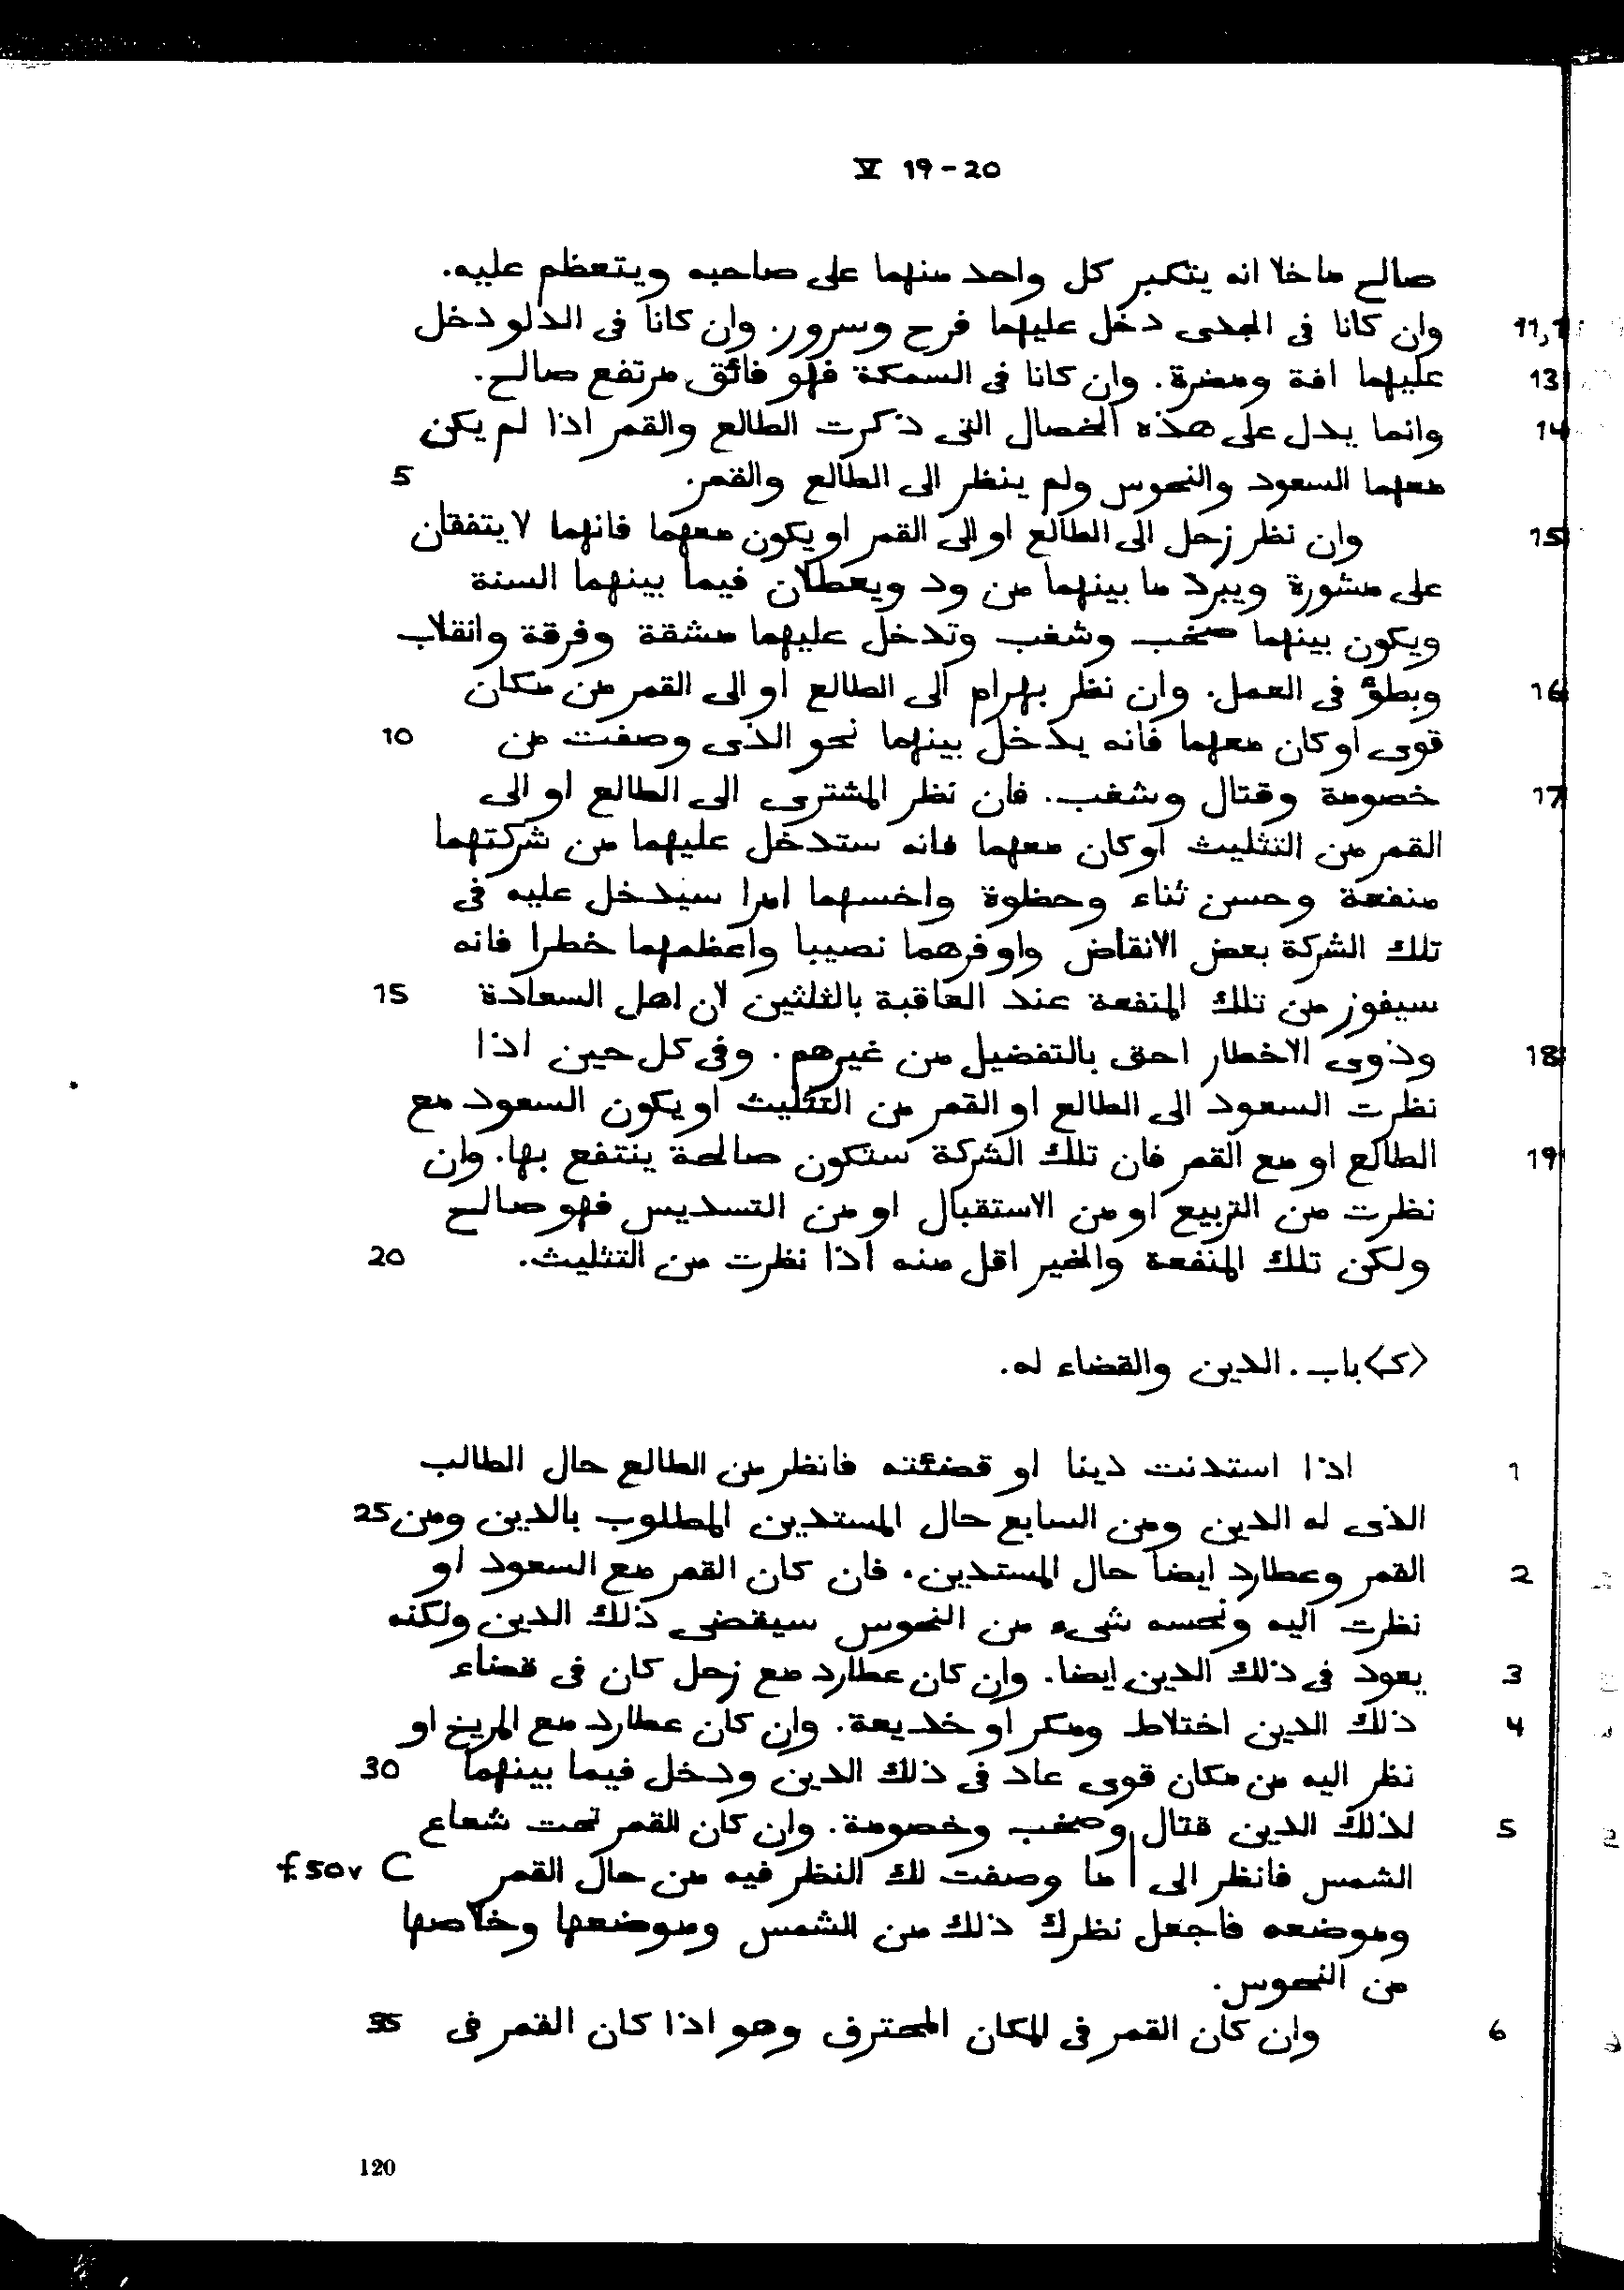 V 19-20
صالح ماخلا انه يتكبر كل واحد منهما على صاحبه ويتعظم عليه.
وان كانا فى الجدى دخل عليهما فرح وسرور. وان كانا فى الدلو دخل 11,1
عليهما افة ومضرة. وان كانا فى السمكة فهو فائق مرتفع صالح. 13
وانما يدل على هذه الخصال التى ذكرت الطالع والقمر اذا لم يكن 14
معهما السعود والنحوس ولم ينظر الى الطالع والقمر. 5
وان نظر زحل الى الطالع او الى القمر او يكون معهما فانهما لا يتفقان 15
على مشورة ويبرد ما بينهما من ود ويعطلان فيما بينهما السنة
ويكون بينهما صخب وشغب وتدخل عليهما مشقة وفرقة وانقلاب
وبطؤ فى العمل. وان نظر بهرام الى الطالع او الى القمر من مكان 16
قوى او كان معهما فانه يدخل بينهما نحو الذى وصفت من 10
خصومة وقتال وشغب. فان نظر المشترى الى الطالع او الى 17
القمر من التثليث او كان معهما فانه ستدخل عليهما من شركتهما
منفعة وحسن ثناء وحظوة واخسهما امرا سيدخل عليه فى
تلك الشركة بعض الانقاض واوفرهما نصيبا واعظمهما خطرا فانه
سيفوز من تلك المنفعة عند العاقبة بالثلثين لان اهل السعادة 15
وذوى الاخطار احق بالتفضيل من غيرهم. وفى كل حين اذا 18
نظرت السعود الى الطالع او القمر من التثليث او يكون السعود مع
الطالع او مع القمر فان تلك الشركة ستكون صالحة ينتفع بها. وان 19
نظرت من التربيع او من الاستقبال او من التسديس فهو صالح
ولكن تلك المنفعة والخير اقل منه اذا نظرت من التثليث. 20
<ك> باب. الدين والقضاء له.
اذا استدنت دينا او قضئته فانظر من الطالع حال الطالب 1
الذى له الدين ومن السابع حال المستدين المطلوب بالدين ومن 25
القمر وعطارد ايضا حال المستدين. فان كان القمر مع السعود او 2
نظرت اليه ونحسه شىء من النحوس سيقضى ذلك الدين ولكنه
يعود فى ذلك الدين ايضا. وان كان عطارد مع زحل كان فى قضاء 3
ذلك الدين اختلاط ومكر او خديعة. وان كان عطارد مع المريخ او 4
نظر اليه من مكان قوى عاد فى ذلك الدين ودخل فيما بينهما 30
لذلك الدين قتال وصخب وخصومة. وان كان القمر تحت شعاع 5
الشمس فانظر الى | ما وصفت لك النظر فيه من حال القمر f.50v C
وموضعه فاجعل نظرك ذلك من الشمس وموضعها وخلاصها
من النحوس.
وان كان القمر فى المكان المحترف وهو اذا كان القمر فى 35 6
120